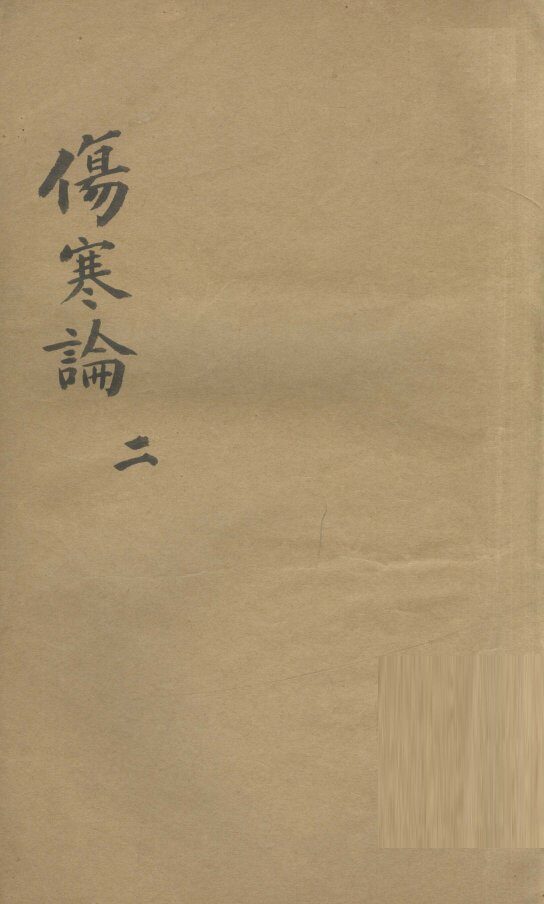 傷寒論
二